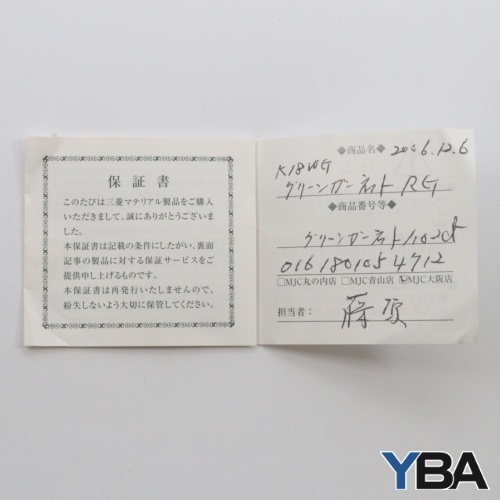 保証書
このたびは三菱マテリアル製品をご購入
いただきまして、誠にありがとうございま
した。
本保証書は記載の条件にしたがい、裏面
記事の製品に対する保証サービスをご
提供申し上げるものです。
本保証書は再発行いたしませんので、
紛失しないよう大切に保管してください。
◆商品名◆ 2006.12.6
K18WG
グリーンガーネット RG
◆商品番号等◆
グリーンガーネット
0161801054712
□MJC丸の内店 □MJC青山店 ☑MJC大阪店
担当者：
YBA